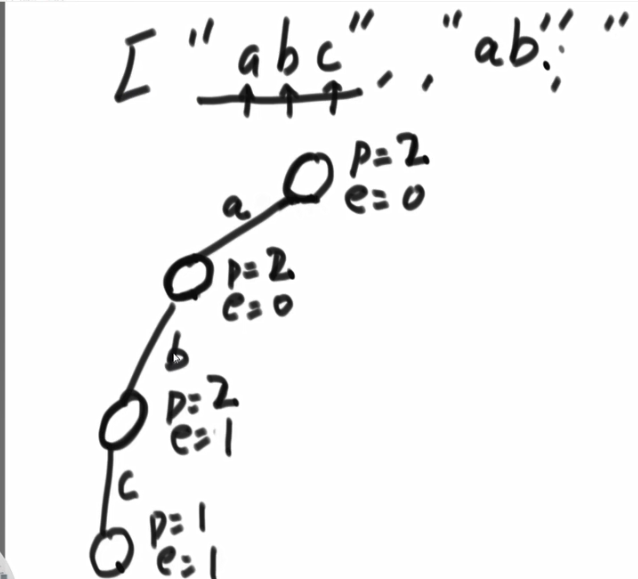 [ "abc" , , "ab" ; "
p=2
e=0
a
p=2
e=0
b
p=2
e=1
c
p=1
e=1